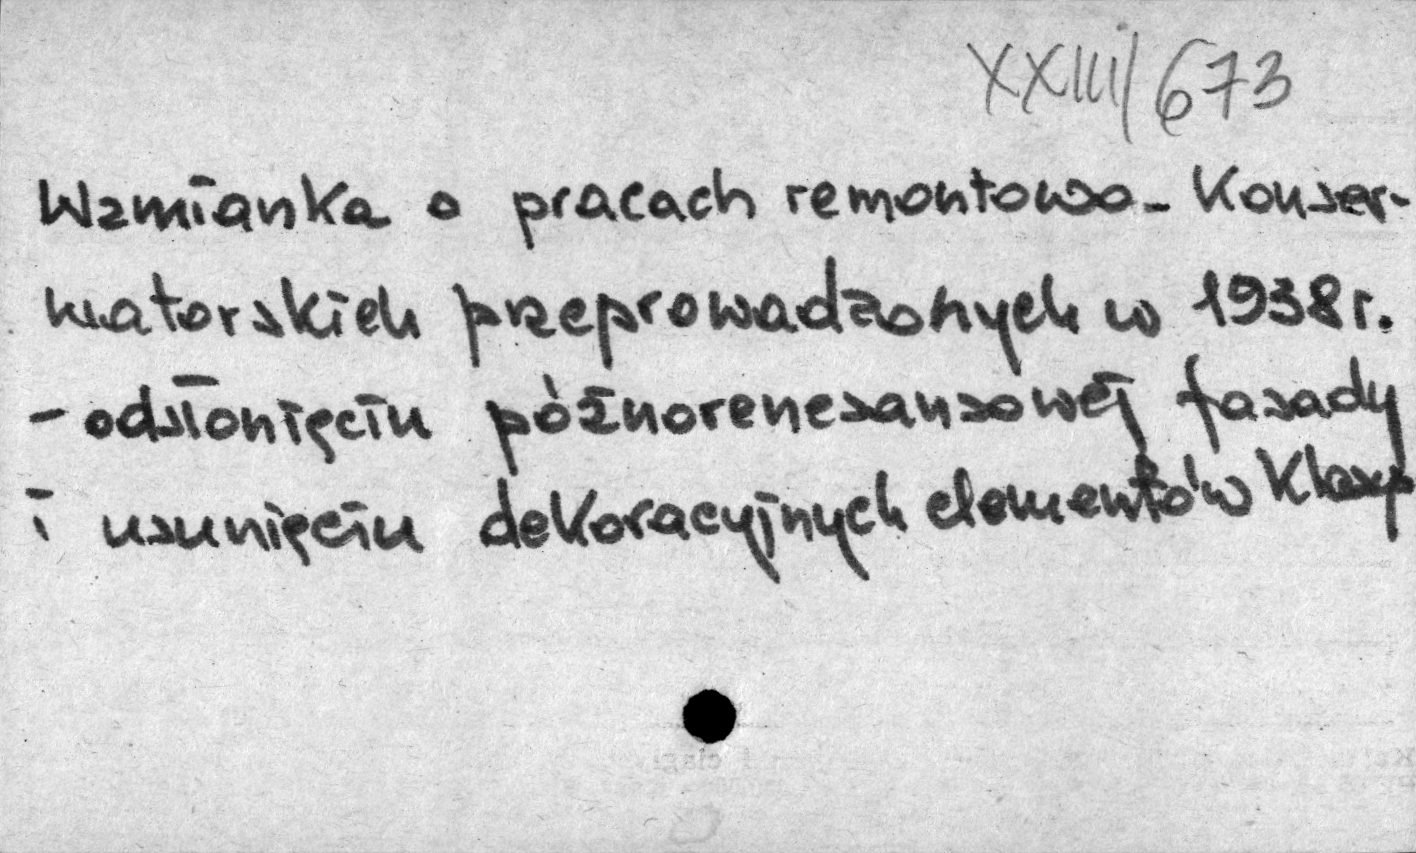 XXIII/673
Wzmianka o pracach remontowo-konser-
watorskich przeprowadzonych w 1938 r.
- odsłonięciu późnorenesansowej fasady
i usunięciu dekoracyjnych elementów klasyc